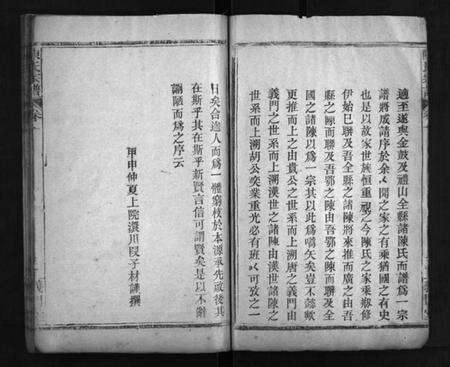 適至遂與金鼓及禮山全縣諸陳氏而譜爲一宗
譜將成請序於余以聞之家之有乘猶國之有史
也是以故家世族恒重視之今陳氏之家乘纂修
伊始已聯及吾全縣之諸陳將來推而廣之由吾
縣之陳而聯及吾鄂之陳由吾鄂之陳而聯及全
國之諸陳以爲一宗其以此爲嚆矢矣豈不懿歟
更推而上之由貴公之世系而上溯唐之義門由
義門之世系而上溯漢世之諸陳由漢世諸陳之
世系而上溯胡公奕葉重光必有班以可攷之一
日矣合途人而爲一體窮枝於本源承先啟後其
在斯乎其在斯乎新賢言信可謂賢矣是以不辭
譾陋而爲之序云
甲申仲夏上院澴川段子材謙撰